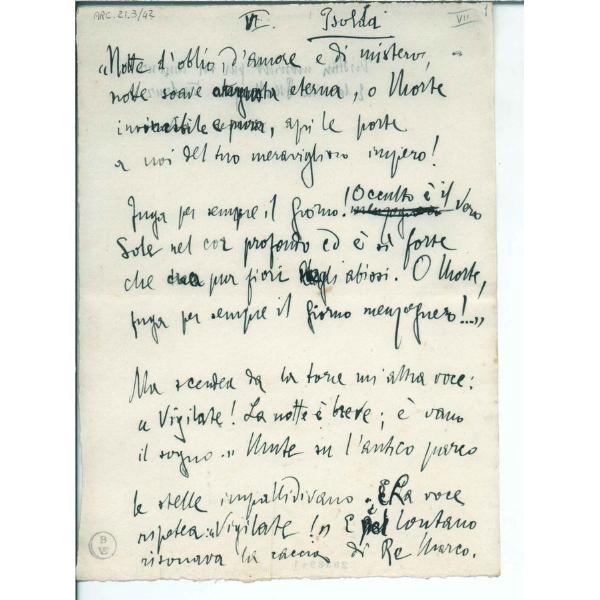 ARC. 21.3/42
VI. Isolda VII
"Notte d'oblio, d'amore e di mistero,
notte soave augusta eterna, o Morte
invincibile e pura, apri le porte
a noi del tuo meraviglioso impero!
Fuga per sempre il Giorno! Occulto è il vero
Sole nel cor profondo ed è sì forte
che crea pur fiori negli abissi. O Morte,
fuga per sempre il Giorno menzognero!..."
Ma scendea da la torre un'altra voce:
"Vigilate! La notte è breve; è vano
il sogno." Mute su l'antico parco
le stelle impallidivano. E La voce
ripetea: "Vigilate!" E pel lontano
risonava la caccia di Re Marco.
B
VE